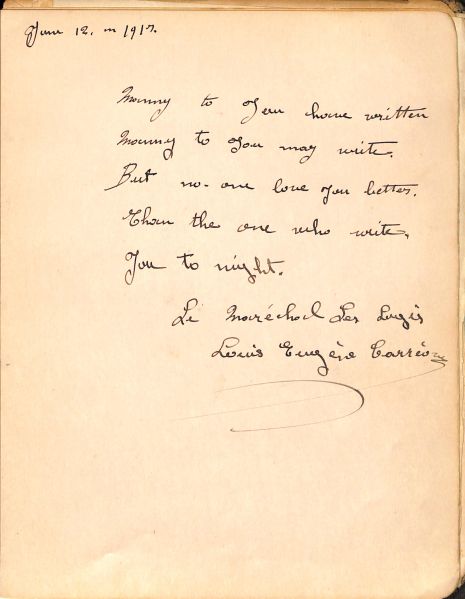 June 12. m 1917.
Manny to You have written
Manny to You may write.
But no-one love You better.
Than the one who write,
You to night.
Le Maréchal des Logis
Louis Eugène